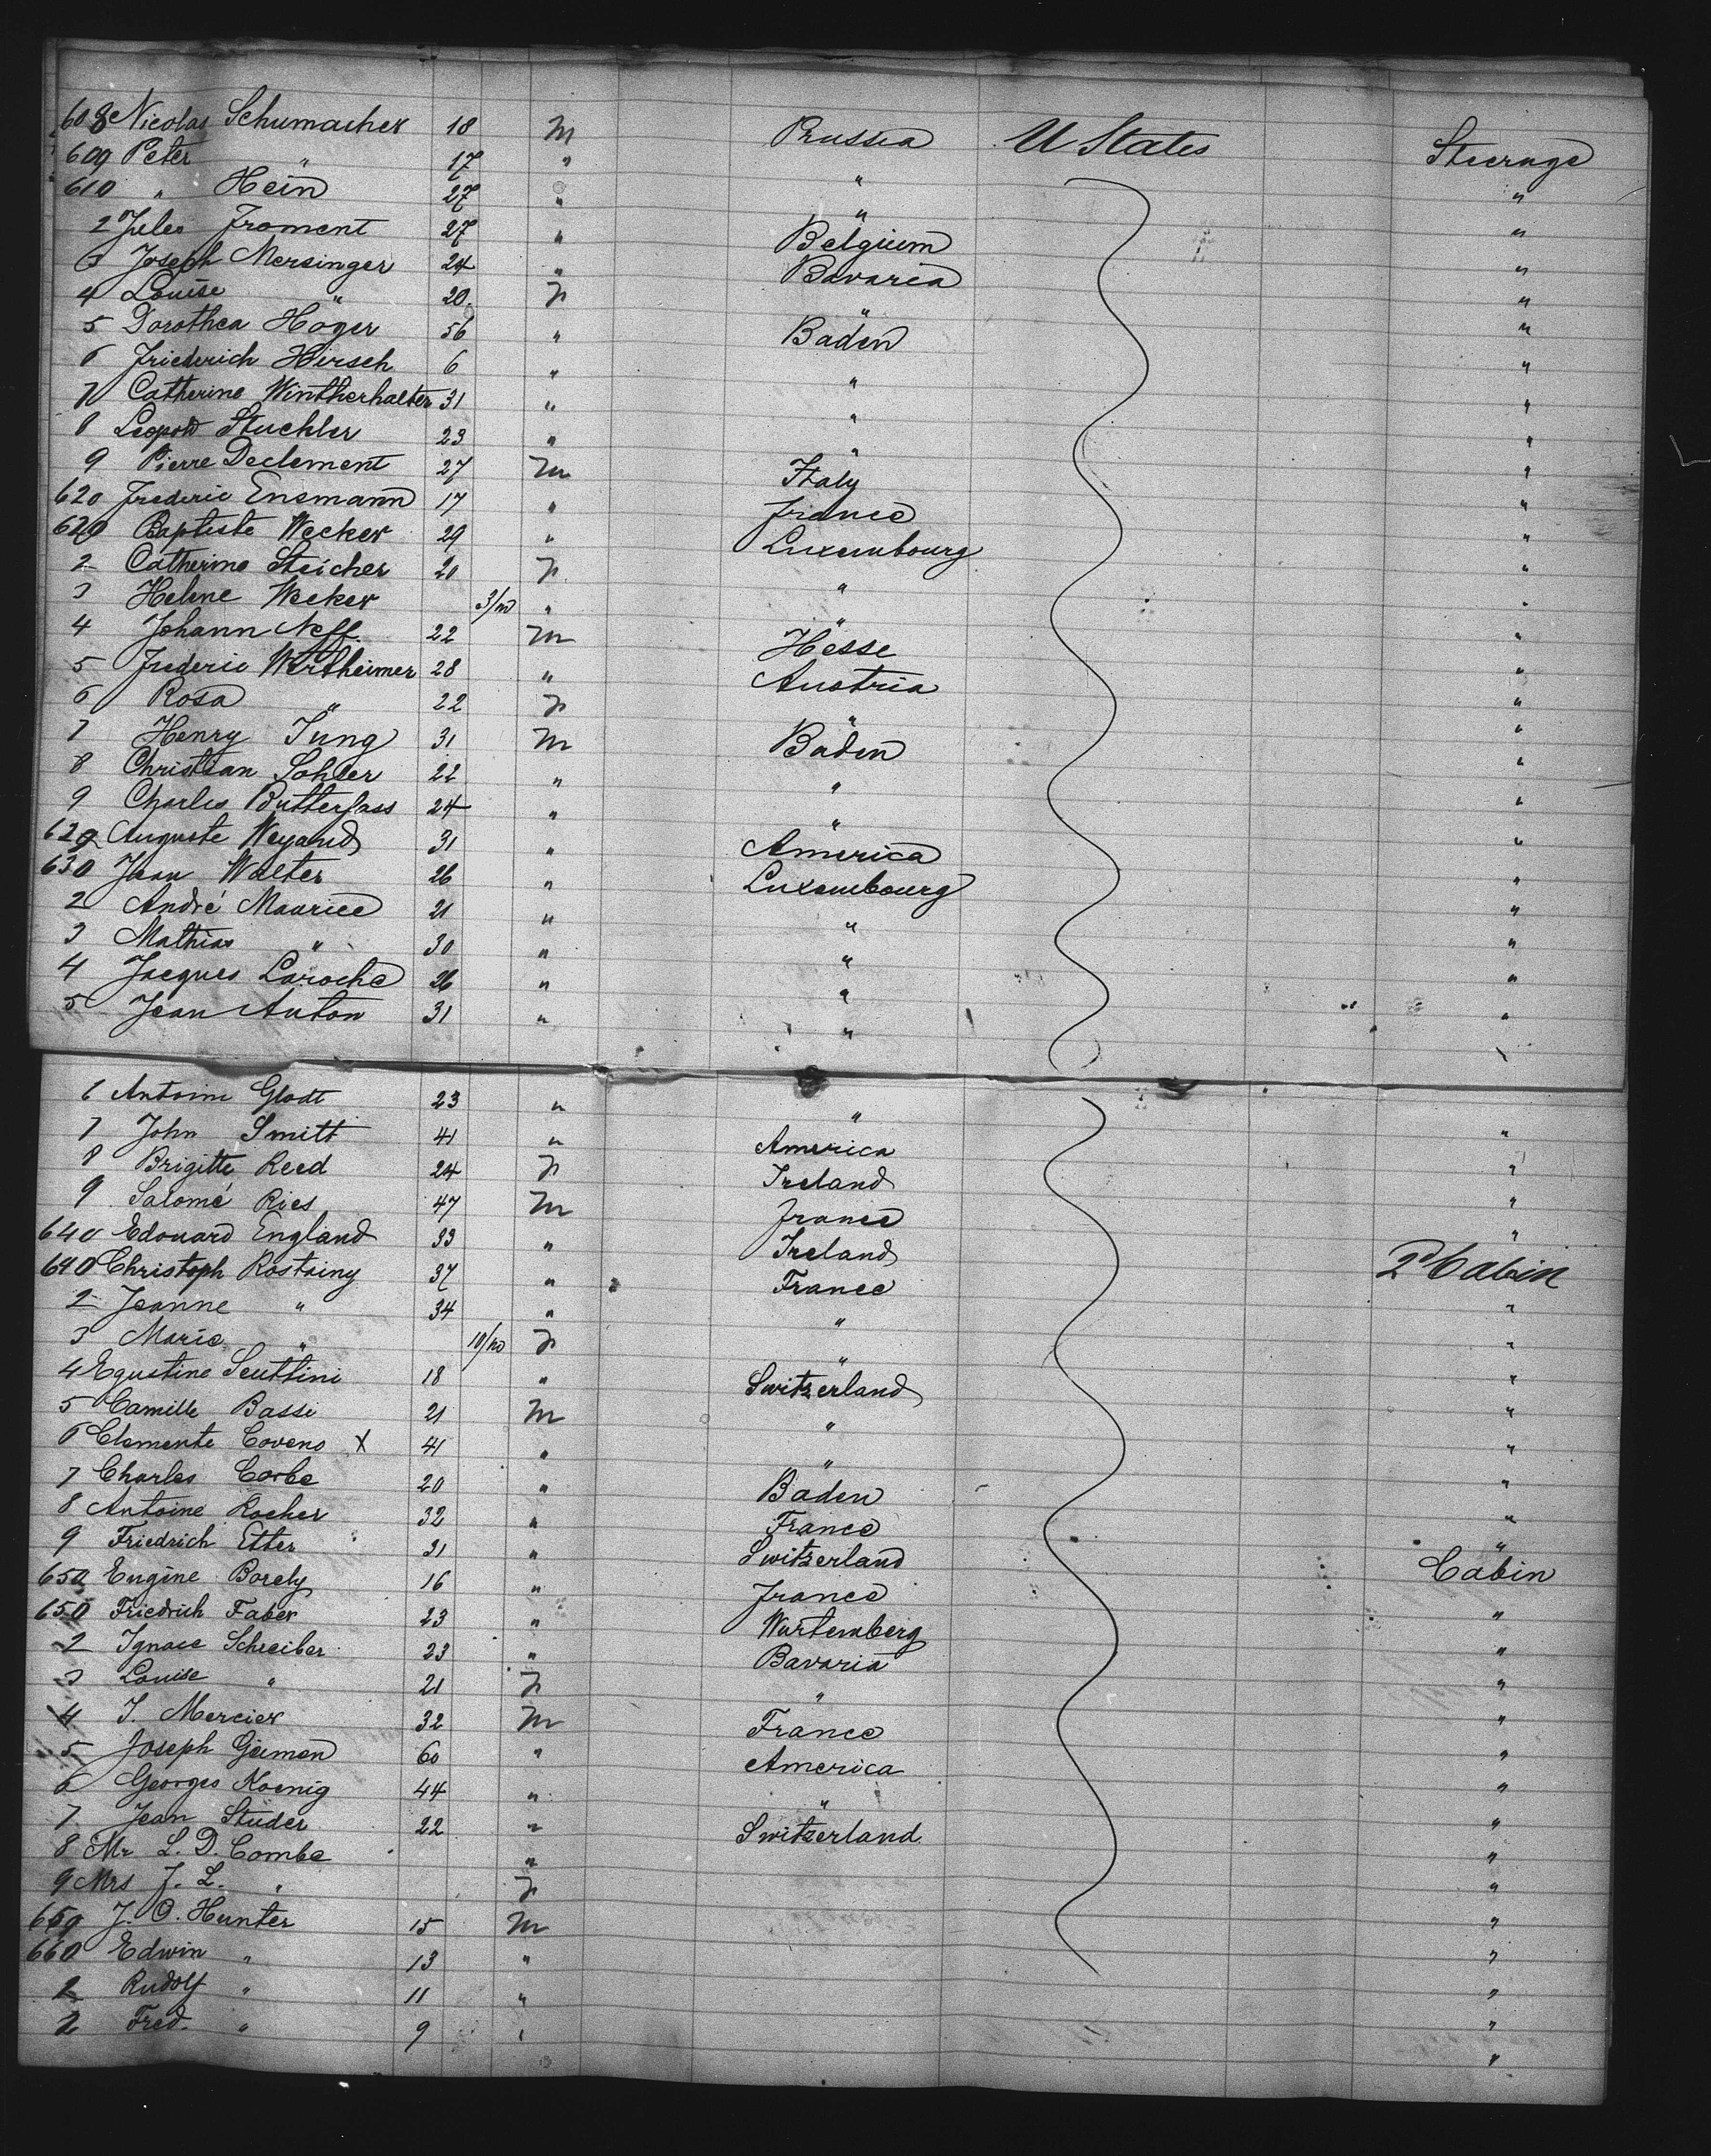 608 Nicolas Schumacher 18 M Prussia U States Steerage
609 Peter " 17 " " "
610 " Hein 27 " " "
2 Jules Froment 27 " Belgium "
3 Joseph Mersinger 24 " Bavaria "
4 Louise " 20 F " "
5 Dorothea Hager 56 " Baden "
6 Friederich Hirsch 6 " " "
7 Catherine Wintherhalter 31 " " "
8 Leopold Stuckler 23 " " "
9 Pierre Declement 27 M Italy "
620 Frederic Ensmann 17 " France "
620 Baptiste Wecker 29 " Luxembourg "
2 Catherine Steicher 20 F " "
3 Helene Wecker 3/m " " "
4 Johann Neff 22 M Hesse "
5 Frederic Wertheimer 28 " Austria "
6 Rosa " 22 F " "
7 Henry Jung 31 M Baden "
8 Christian Sohler 22 " " "
9 Charles Butterfass 24 " " "
629 Auguste Weyand 31 " America "
630 Jean Walter 26 " Luxembourg "
2 André Maurice 21 " " "
3 Mathias " 30 " " "
4 Jacques Laroche 26 " " "
5 Jean Anton 31 " " "
6 Antoine Glodt 23 " " "
7 John Smitt 41 " America "
8 Brigitte Reed 24 F Ireland "
9 Salomé Ries 47 M France "
640 Edouard England 33 " Ireland "
640 Christoph Rostaing 37 " France 2d Cabin
2 Jeanne " 34 " " "
3 Marie " 10/m F " "
4 Egustine Scuttini 18 " Switzerland "
5 Camille Bassi 21 M " "
6 Clemente Covens X 41 " " "
7 Charles Corbe 20 " Baden "
8 Antoine Rocher 32 " France "
9 Friedrich Etter 31 " Switzerland "
650 Eugène Borely 16 " France Cabin
650 Friedrich Faber 23 " Wurtemberg "
2 Ignace Schreiber 23 " Bavaria "
3 Louise " 21 F " "
4 J. Mercier 32 M France "
5 Joseph 60 " America "
6 Georges Koenig 44 " " "
7 Jean Studer 22 " Switzerland "
8 Mr L. D. Combe " "
9 Mrs J. L. " F "
659 J. O. Hunter 15 M "
660 Edwin " 13 " "
2 Rudolf " 11 " "
2 Fred. " 9 " "